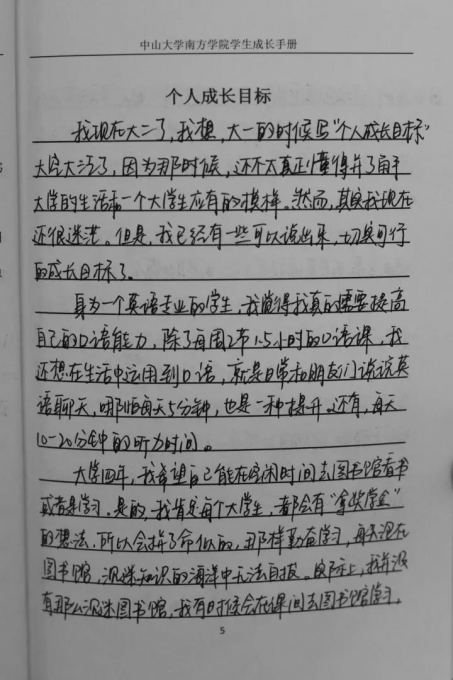 中山大学南方学院学生成长手册
个人成长目标
我现在大二了,我想,大一的时候写“个人成长目标”
太空太泛了,因为那时候,还不太真正懂得并了解
大学的生活和一个大学生应有的模样。然而,其实我现在
还很迷茫。但是,我已经有一些可以说出来,切实可行
的成长目标了。
身为一个英语专业的学生,我觉得我真的需要提高
自己的口语能力,除了每周2节1.5小时的口语课,我
还想在生活中运用到口语,就是日常和朋友们谈谈英
语聊天,哪怕每天5分钟,也是一种提升。还有,每天
10-20分钟的听力时间。
大学四年,我希望自己能在空闲时间去图书馆看书
或者是学习。是的,我肯是每个大学生,都会有“拿奖学金”
的想法,所以会拼了命似的,那样勤奋学习,每天泡在
图书馆,沉迷知识的海洋中无法自拔。实际上,我并没
有那么沉迷图书馆,我有时候会在课间去图书馆学习,
5